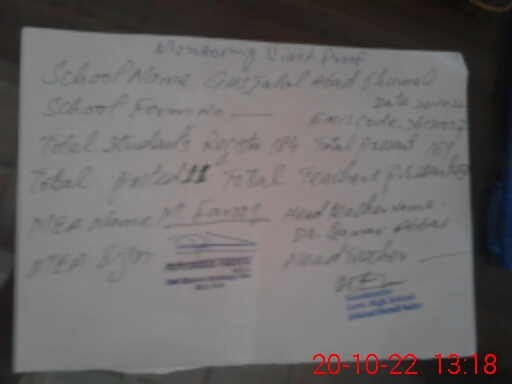 Monitoring Visit Proof
School Name GHS Jalal Abad Shumali
Date 20-10-22
School Form No
Emis Code.
Total Students Registe 184 Total present 169
Total posted 11 Total Teachers present
MEA Name M. Farooq Head teacher name.
Dr. Qamar Abbas
MEA Sign Head Teacher
Headmaster
Govt. High School
20-10-22 13:18